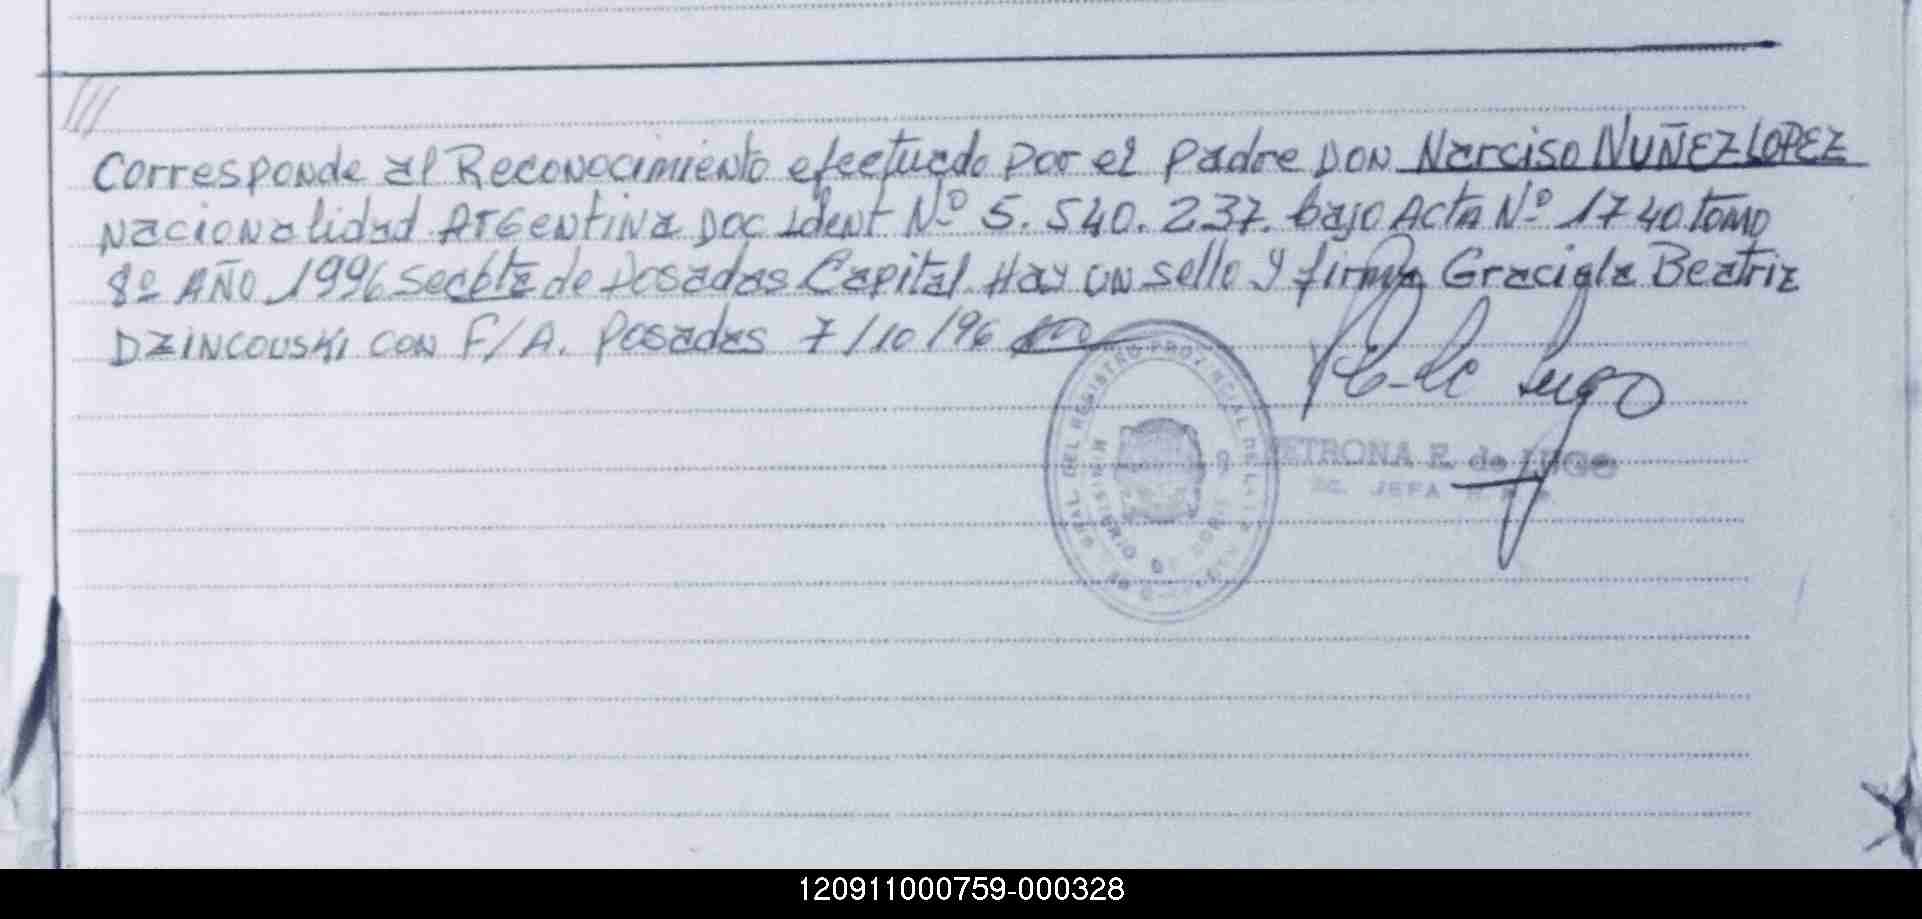 ///
Corresponde al Reconocimiento efectuado por el padre DON Narciso NUÑEZ LOPEZ
Nacionalidad Argentina Doc Ident Nº 5.540.237. bajo Acta Nº 1740 tomo
8º AÑO 1996 de Posadas Capital. Hay un sello y firma Graciela Beatriz
DZINCOUSKI con F/A. Posadas 7/10/96
DEL REGISTRO PROVINCIAL DE LAS
PETRONA E. de LUGO
JEFA
120911000759-000328